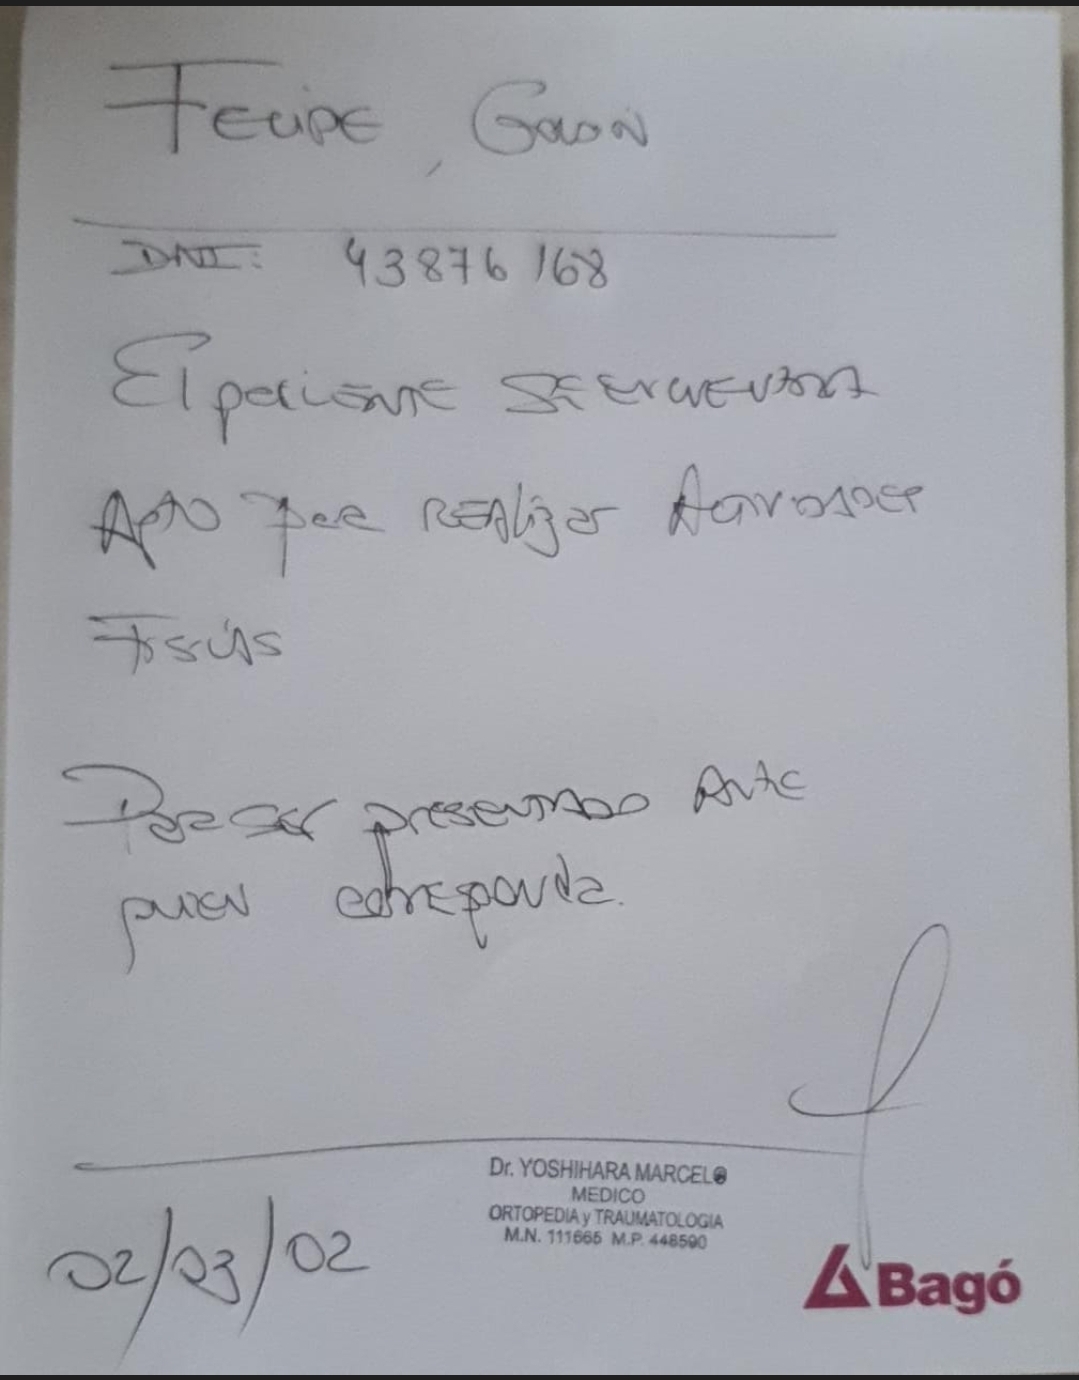 FELIPE, 
DNI: 43876168
El paciente se encuentra
Apto para REAlizar Actividades
Físicas
Para ser presentado Ante
quien corresponda.
Dr. YOSHIHARA MARCELO
MEDICO
ORTOPEDIA y TRAUMATOLOGIA
M.N. 111665 M.P. 448590
02/03/02
Bagó